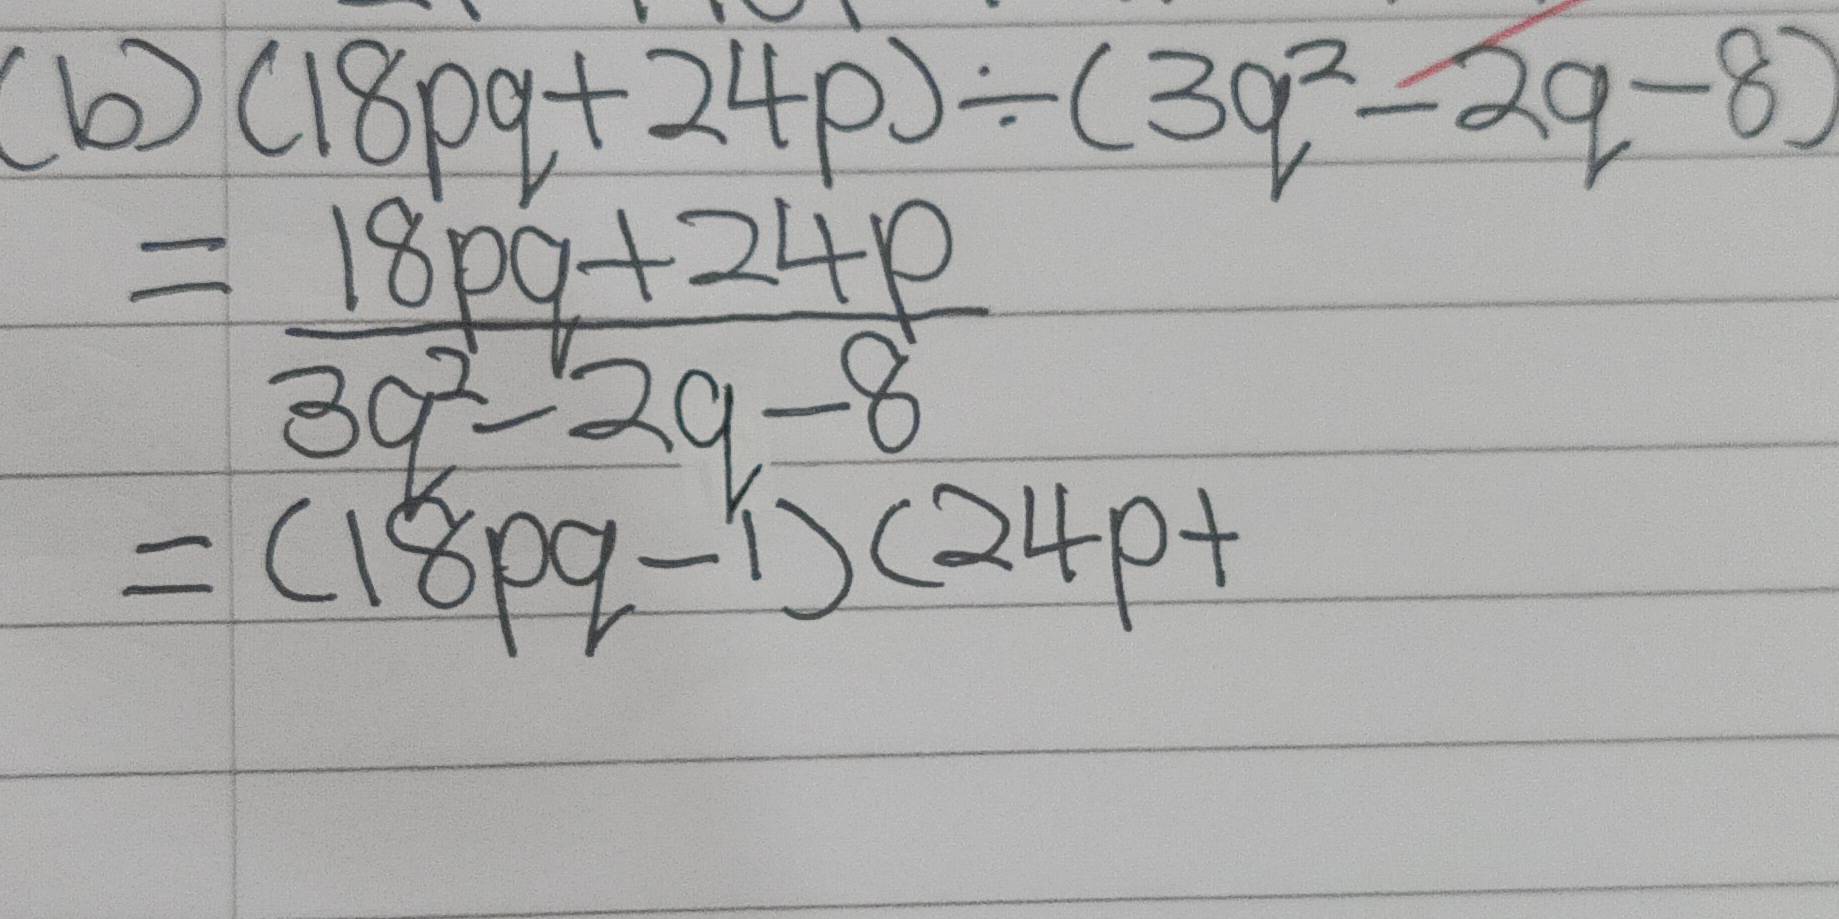 (b) (18pq+24p)÷(3q²-2q-8)
= 18pq+24p
3q²-2q-8
= (18pq-1)(24p+